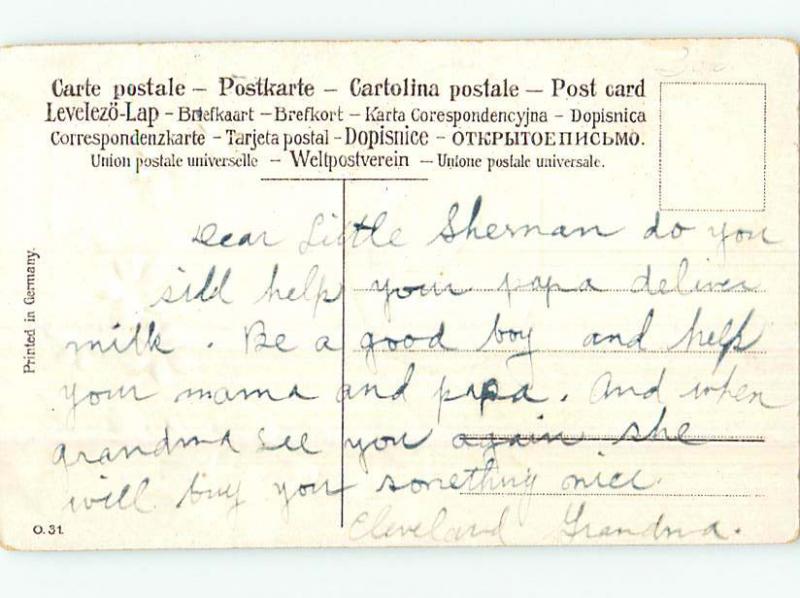 Carte postale – Postkarte – Cartolina postale – Post card
Levelező-Lap – Briefkaart – Brefkort – Karta Corespondencyjna – Dopisnica
Correspondenzkarte – Tarjeta postal – Dopisnice – ОТКРЫТОЕПИСЬМО.
Union postale universelle – Weltpostverein – Unione postale universale.
Dear Little Sherman do you
still help your papa deliver
milk. Be a good boy and help
your mama and papa. And when
grandma see you again she
will buy you something nice.
Cleveland Grandma.
Printed in Germany.
O. 31.